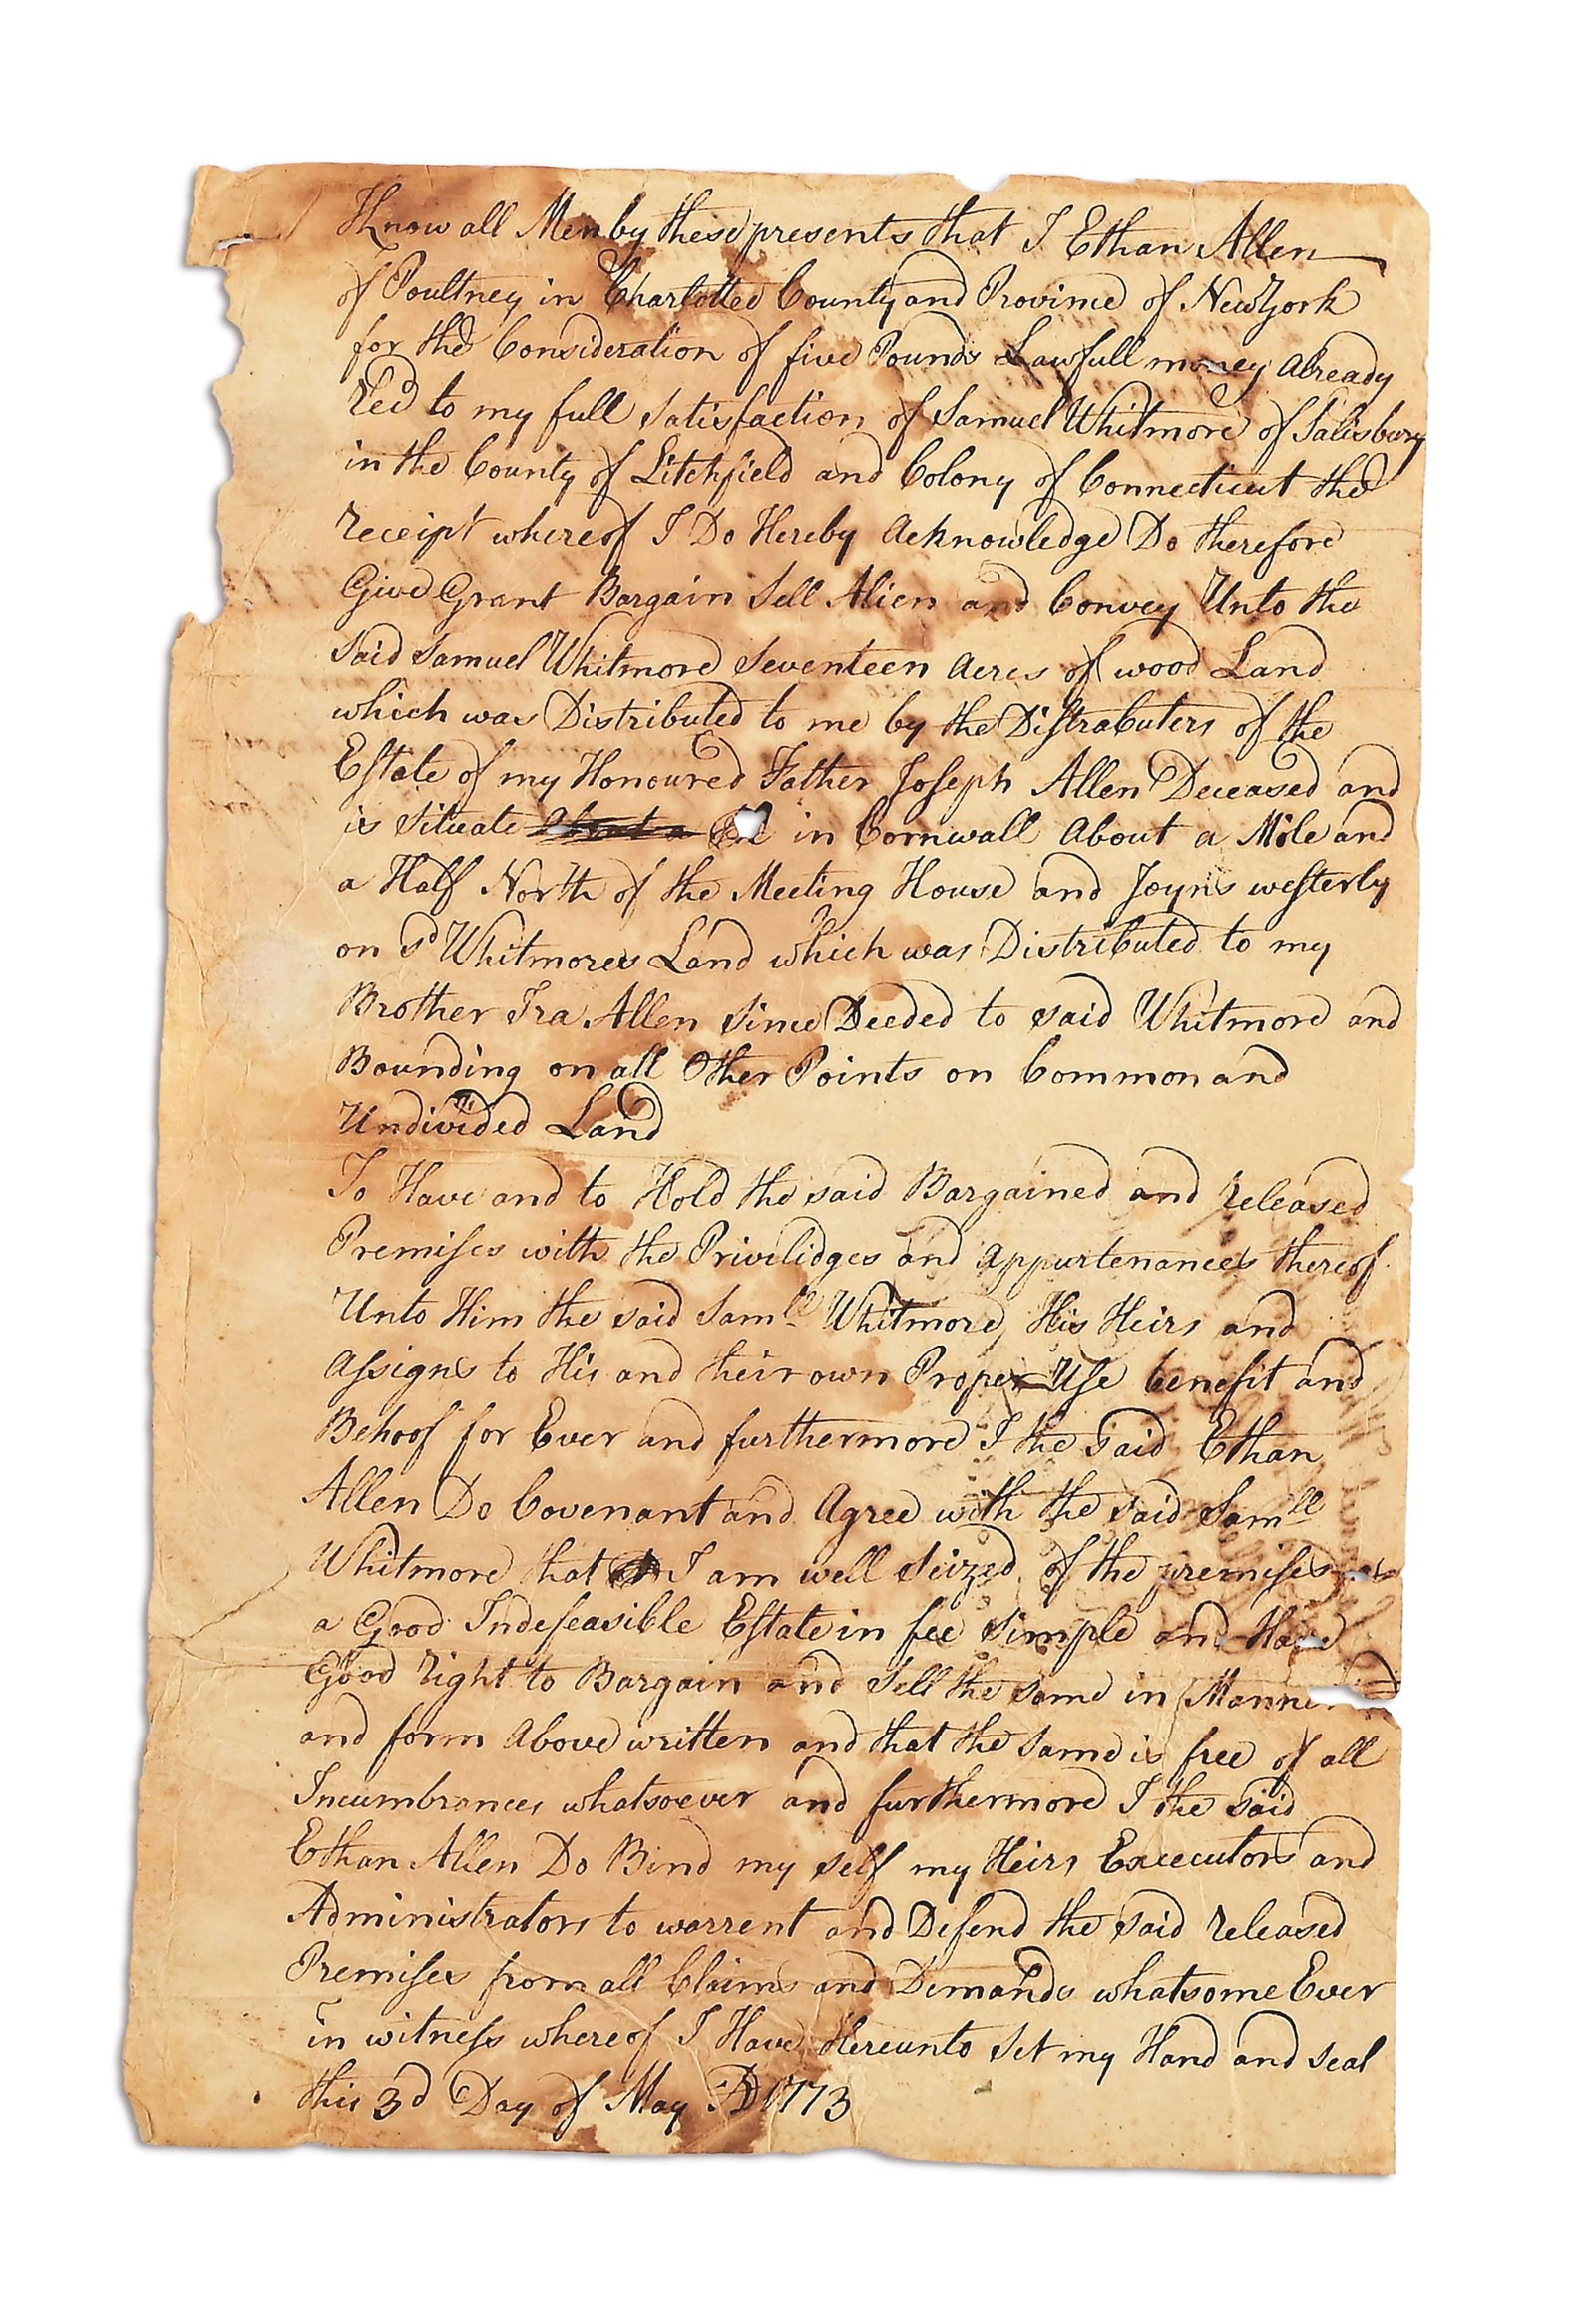 Know all Men by these presents that I Ethan Allen
of Poultney in Charlottee County and Province of New York
for the Consideration of five Pounds Lawfull money already
Recd to my full satisfaction of Samuel Whitmore of Salisbury
in the County of Litchfield and Colony of Connecticut the
receipt whereof I Do Hereby acknowledge Do therefore
Give Grant Bargain Sell Alien and Convey Unto the
said Samuel Whitmore Seventeen acres of wood Land
which was Distributed to me by the Distrabuters of the
Estate of my Honoured Father Joseph Allen Deceased and
is situate in Cornwall about a Mile and
a Half North of the Meeting House and Joyns westerly
on sd Whitmores Land which was Distributed to my
Brother Ira Allen since Deeded to said Whitmore and
Bounding on all Other Points on Common and
Undivided Land
To Have and to Hold the said Bargained and released
Premises with the Privilidges and appurtenances thereof
Unto Him the said Samll Whitmore His Heirs and
assigns to His and their own Proper Use benefit and
Behoof for Ever and furthermore I the said Ethan
Allen Do Covenant and Agree with the said Samll
Whitmore that I am well seized of the premises as
a Good Indefeasible Estate in fee simple and Have
Good right to Bargain and Sell the same in Manner
and form above written and that the same is free of all
Incumbrances whatsoever and furthermore I the said
Ethan Allen Do Bind my self my Heirs Excecutors and
Administrators to warrent and Defend the said released
Premises from all Claims and Demands whatsome Ever
in witness whereof I Have Hereunto set my Hand and seal
this 3d Day of May AD 1773